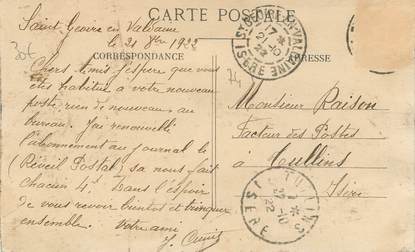 CARTE POSTALE
Saint Geoire en Valdaine
le 21 8bre 1922
30f
CORRESPONDANCE
ADRESSE
Chers Amis j'espère que vous
êtes habitué à votre nouveau
poste, rien de nouveau au
bureau. J'ai renouvelé
l'abonnement au journal le
(Réveil Postal, sa nous fait
chacun 4. Dans l'espoir
de vous revoir bientôt et trinquer
ensemble. Votre ami
74
Monsieur Raison
Facteur des Postes
à Tullins
Isère
ST GEOIRE-EN-VALDAINE
ISERE
21-10
22
TULLINS
22-10
22
ISERE